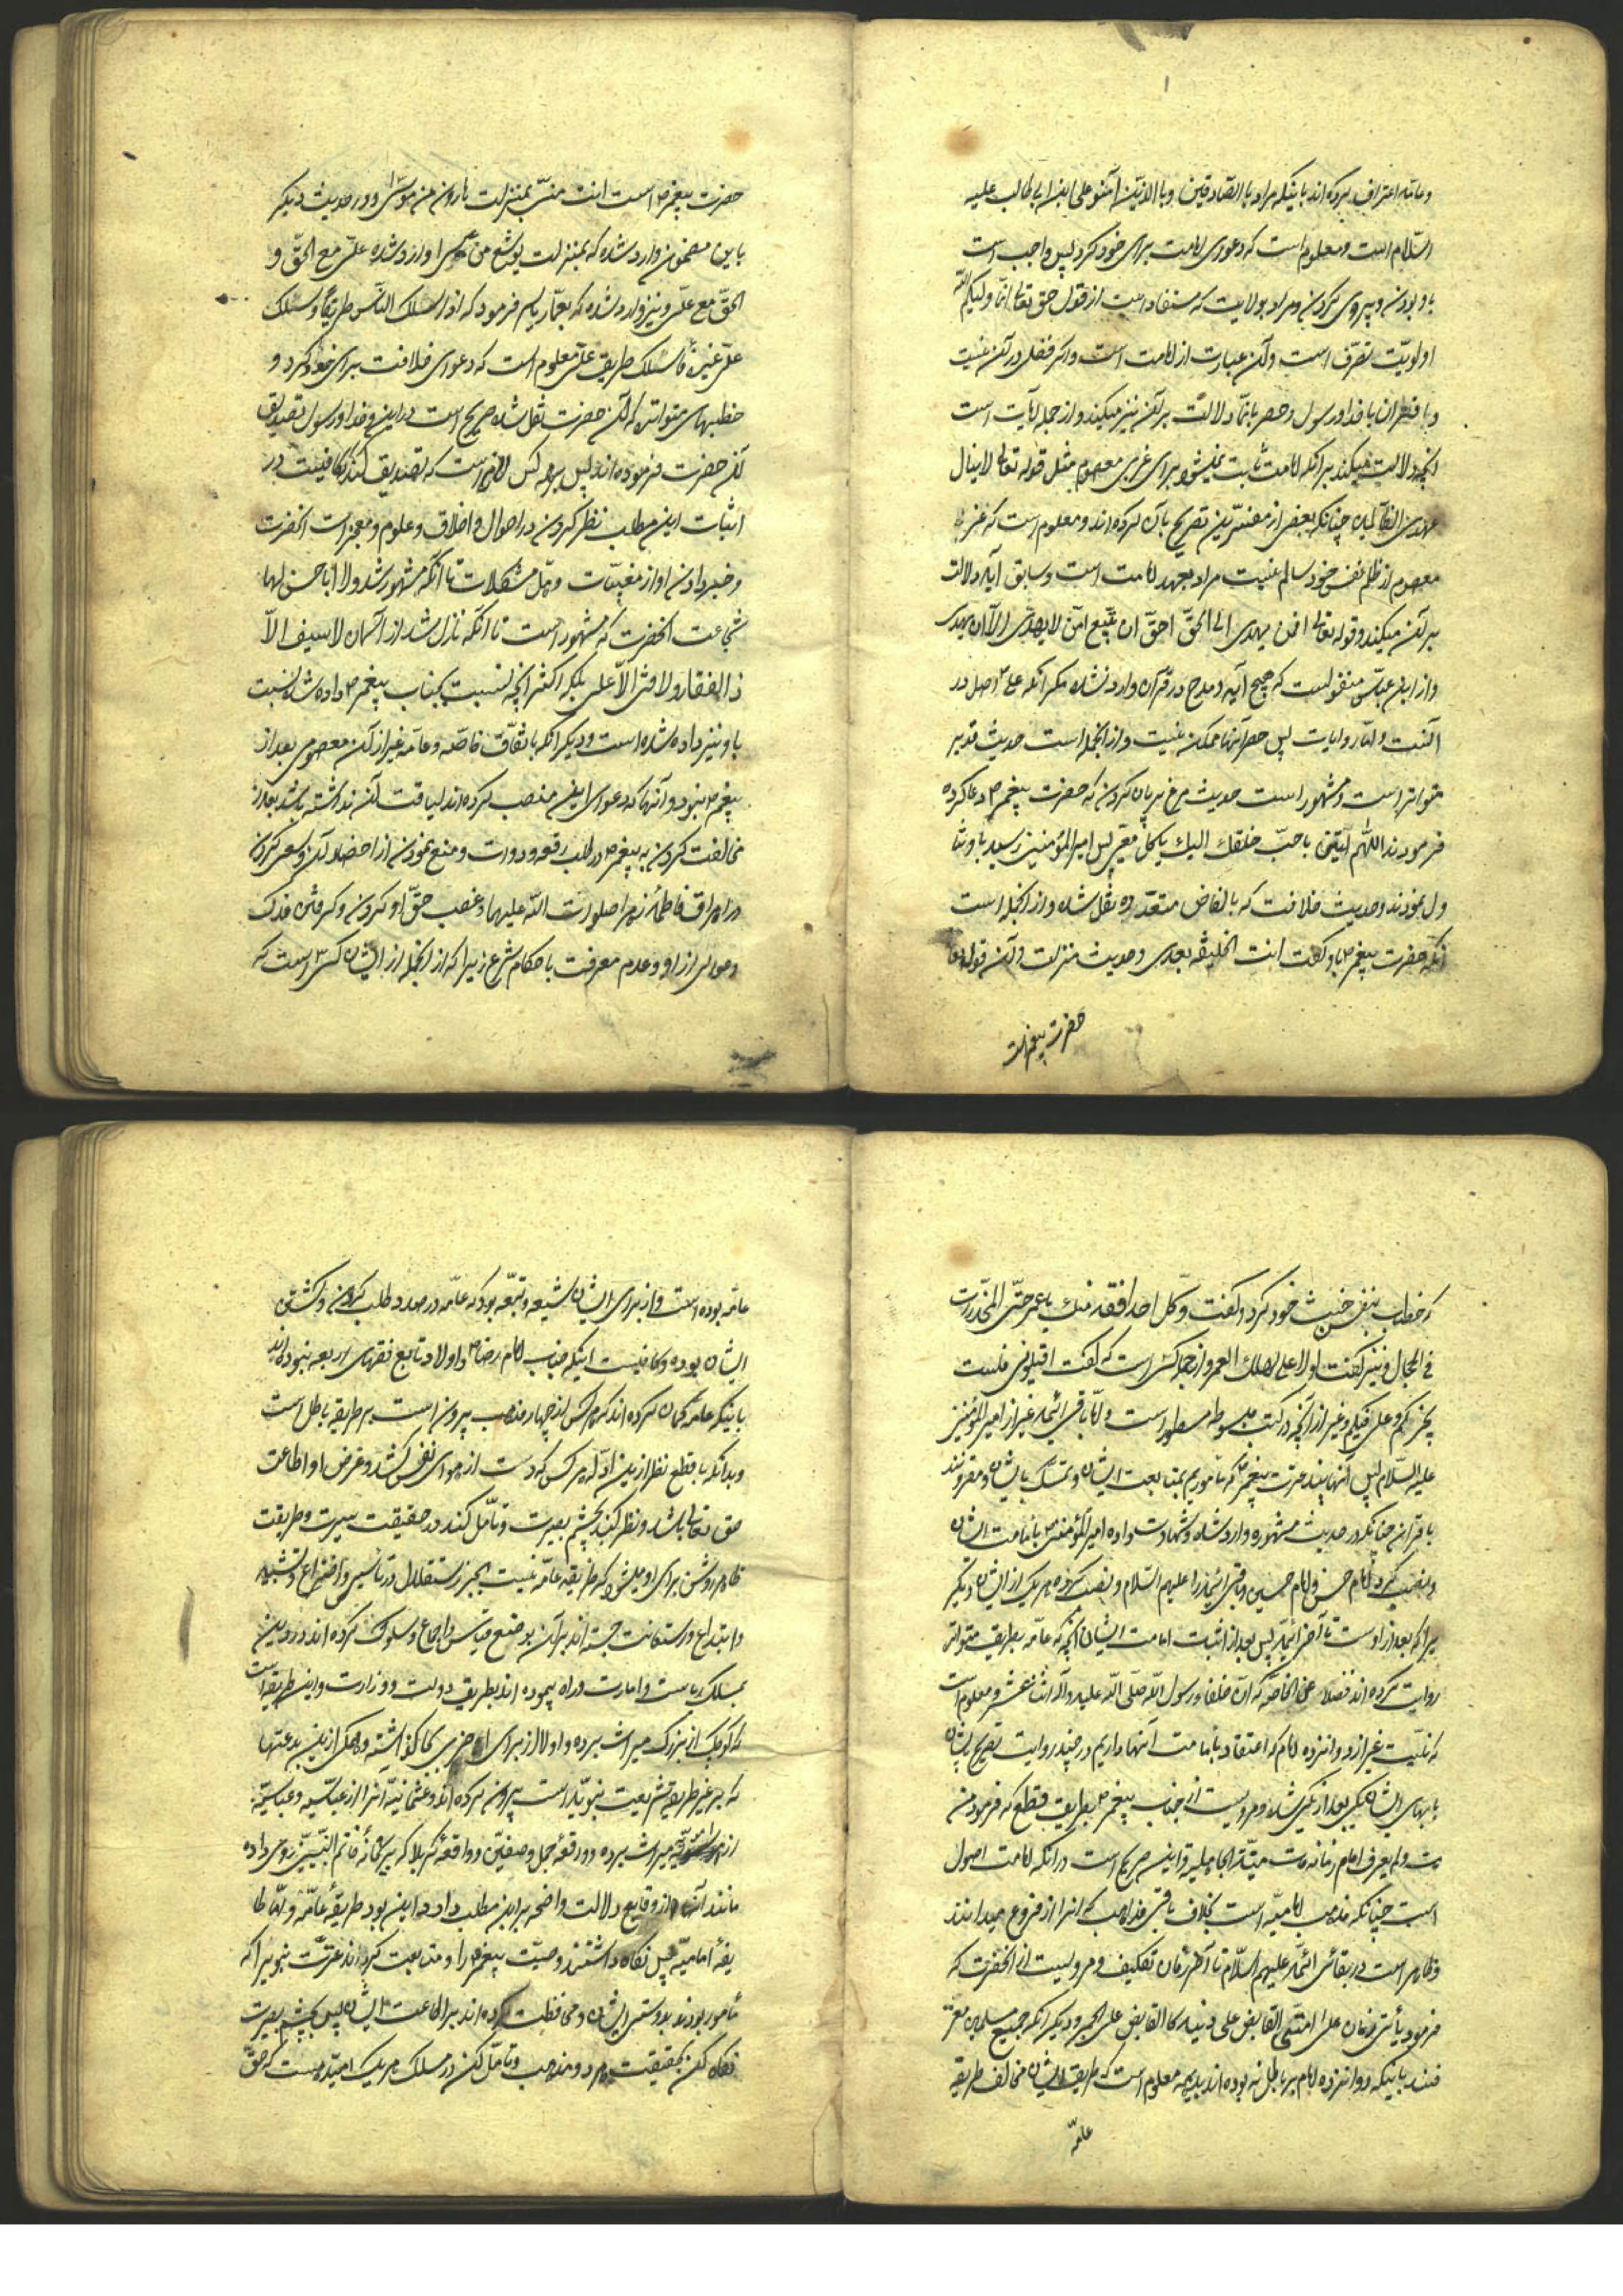 و عامه اعتراف کرده‌اند باینکه مراد با الصادقین و با الذین آمنوا علی ابن ابی طالب علیه
السّلام است و معلوم است که دعوی امامت برای خود کرد پس واجب است
با او بودن و پیروی کردن و مراد بولایت که مستفاد است از قول حق تعالی انّما ولیکم الله
اولویّت تصرّف است و آن عبارت از امامت است و اکر فصلی در آن نیست
و با قتران با خدا و رسول و حصر بانّما دلالت بر آن نیز میکند و از جمله آیات است
انچه دلالت میکند بر آنکه امامت ثابت نمیشود برای غیر معصوم مثل قوله تعالی لا ینال
عهدی الظالمین چنانکه بعضی از مفسّرین تصریح بآن کرده‌اند و معلوم است که غیر
معصوم از ظلم نفس خود سالم نیست مراد بعهد امامت است و سابق آیه دلالت
بر آن میکند و قوله تعالی افمن یهدی الی الحقّ احقّ ان یتّبع امّن لا یهدّی الّا ان یهدی
و از ابن عبّاس منقولست که هیچ آیه در مدح در قرآن وارد نشده مکر آنکه علی اصل در
آنست و امّا روایات پس حصر آنها ممکن نیست و از انجمله است حدیث غدیر
متواتر است و مشهور است حدیث مرغ بریان کردن که حضرت پیغمبر ص دعا کرده
فرمودند اللّهم ایتنی باحبّ خلقک الیک یأکل معی پس امیر المؤمنین رسید با او تنا
ول نمودند و حدیث خلافت که بالفاض متعدّده نقل شده و از انجمله است
آنکه حضرت پیغمبر ص باو گفت انت الخلیفه بعدی و حدیث منزلت و آن قول
حضرت پیغمبر است
حضرت پیغمبر ص است انت منّی بمنزلت هارون من موسی و در حدیث دیکر
باین مضمون وارد شده که بمنزلت یوشع من موسی و وارد شده علیّ مع الحقّ و
الحقّ مع علیّ و نیز وارد شده که بعمّار یاسر فرمود که اذا سلک النّاس طریقا و سلک
علیّ غیره فاسلک طریق علیّ معلوم است که دعوی خلافت برای خود کرد و
خطبهای متواتره که از آن حضرت نقل شده صریح است در این و خدا و رسول تصدیق
آن حضرت فرموده‌اند پس بر هر کس لازم است که تصدیق کند و کافیست در
اثبات این مطلب نظر کردن در احوال و اخلاق و علوم و معجزات انحضرت
و خبر دادن او از مغیبات و حلّ مشکلات تا آنکه مشهور شد و لا ابا حسن لها
شجاعت انحضرت که مشهور است تا آنکه نازل شد از آسمان لا سیف الّا
ذا الفقار و لا فتی الّا علی بلکه اکثر انچه نسبت بجناب پیغمبر ص داده شده نسبت
باو نیز داده شده است و دیکر آنکه باتّفاق خاصّه و عامّه غیر از آن معصومی بعد از
پیغمبر ص نبود و آنها که دعوی این منصب کرده‌اند لیاقت آن نداشته باشند بعد از
مخالفت کردن به پیغمبر ص در طلب رقعه و دوات و منع نمودن از احضار آن و سعی کردن
در احراق فاطمه زهرا صلوات الله علیهما و غصب حقّ او کردن و کرفتن فدک
و عوالی از او و عدم معرفت باحکام شرع زیرا که از انجمله از ایشان کسی است که
که خطاب بنفس خبیث خود کرد و گفت و کلّ احد افقه منک یا عمر حتّی المخدّرات
فی الحجال و نیز گفت لولا علی لهلک العمر و از جمله کسی است که گفت اقیلونی فلست
بخیرکم و علی فیکم و غیر از انچه در کتب مبسوطه مسطور است و امّا باقی ائمّه غیر از امیر المؤمنین
علیه السّلام پس آنهایند عترت پیغمبر ص که مأموریم بمتابعت ایشان و تمسّک بایشان و مقرونند
با قران چنانکه در حدیث مشهوره وارد شده و شهادت داده امیر المؤمنین بامامت ایشان
و نصب کرد امام حسن و امام حسین و باقی ائمّه را علیهم السّلام و نصب کرده هر یک از ایشان دیکر
برا که بعد از اوست تا آخر ائمّه پس بعد از اثبات امامت ایشان آنچه که عامّه بطریق متواتر
روایت کرده‌اند فضلا عن الخاصّه که انّ خلفاء رسول اللّه صلّی اللّه علیه و آله اثنا عشر و معلوم است
که نیست غیر از دوازده امام که اعتقاد بامامت آنها داریم و در چند روایت تصریح شده
بنامهای ایشان یکی بعد از یکی شده و مرویست از جناب پیغمبر ص بطریق قطع که فرمود من
مات و لم یعرف امام زمانه مات میتة الجاهلیه و این صریح است در آنکه امامت اصول
است چنانکه مذهب امامیّه است بخلاف باقی مذاهب که انرا از فروع میدانند
و ظاهر است در بقای ائمّه علیهم السّلام تا آخر زمان تکلیف و مرویست از انحضرت که
فرمود یأتی زمان علی امّتی القابض علی دینه کا القابض علی الجمر و دیکر آنکه جمیع مسلمین معتر
فند باینکه دوازده امام بر باطل نه بوده‌اند بدیهه معلوم است که طریقه ایشان مخالف طریقه
عامّه
عامّه بوده است و از برای ایشان شیعه و تبعه بود که عامّه در صدد طلب کردن و کشتن
ایشان بوده و کافیست اینکه جناب امام رضا ص و اولاد تابع فقهای اربعه نبوده‌اند
باینکه عامّه کمان کرده‌اند که هر کس از چهار مذهب بیرون است بر طریقه باطل است
و بدانکه با قطع نظر از این ادلّه هر کس که دست از هوای نفس کشد و غرض او اطاعت
حق تعالی باشد و نظر کند بچشم بصیرت و تأمّل کند در حقیقت سیرت و طریقت
ظاهر و روشن برای او میشود که طریقه عامّه نیست بجز استقلال در تأسیس و اختراع و تشبیه
و ابتداع و استعانت جسته‌اند بر آن بوضع قیاس و اجماع و سلوک کرده‌اند در دین
بمسلک ریاست و امارت و راه پیموده‌اند بطریق دولت و وزارت و این طریقه است
که کوچک از بزرک میراث برده و اولا از برای آخر چیزی بجا گذاشته و هر یک از این بدعتها
که بر غیر طریقه شریعت نبویّه است بیرون کرده‌اند و عثمانیّه آنرا از عبّاسیه و عباسیّه
از امویّه میراث برده و واقعهٔ جمل و صفیّن و واقعهٔ کربلا که بر خانهٔ خاتم النّبیّین روی داده
مانند آنها از وقایع دلالت واضحه بر این مطلب دارد و این بود طریقهٔ عامّه و امّا طا
یفهٔ امامیّه پس نکاه داشتند وصیّت پیغمبر ص را و متابعت کرده‌اند عترت نبویرا که
مأمور بودند بدوستی ایشان و محافظت کرده‌اند بر اطاعت ایشان پس بچشم بصیرت
نکاه کن بحقیقت هر دو مذهب و تأمّل کن در مسلک هر یک امید هست که حقّ